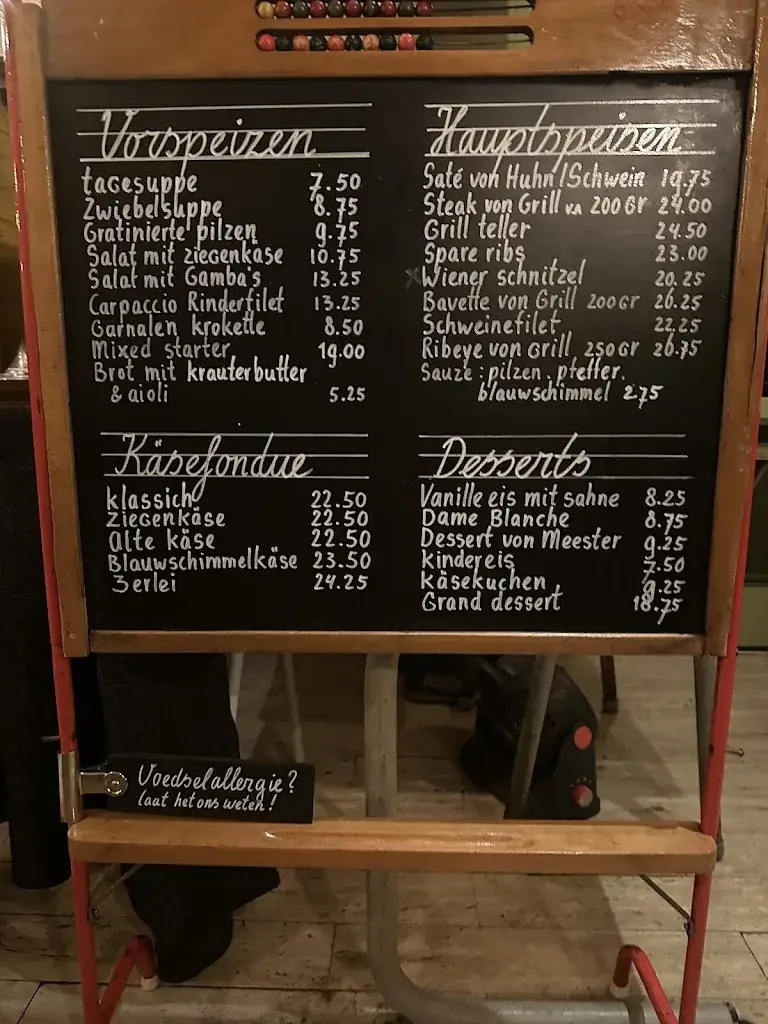 Vorspeizen
tagesuppe 7.50
Zwiebelsuppe 8.75
Gratinierte pilzen 9.75
Salat mit ziegenkäse 10.75
Salat mit Gamba's 13.25
Carpaccio Rinderfilet 13.25
Garnalen krokette 8.50
Mixed starter 19.00
Brot mit krauterbutter
& aioli 5.25
Käsefondue
klassich 22.50
ziegenkäse 22.50
alte käse 22.50
Blauwschimmelkäse 23.50
3erlei 24.25
Hauptspeisen
Saté von Huhn/Schwein 19.75
Steak von Grill va 200 Gr 24.00
Grill teller 24.50
Spare ribs 23.00
x Wiener schnitzel 20.25
Bavette von Grill 200 Gr 26.25
Schweinefilet 22.25
Ribeye von Grill 250 Gr 26.75
Sauze : pilzen, pfeffer,
blauwschimmel 2.75
Desserts
Vanille eis mit sahne 8.25
Dame Blanche 8.75
Dessert von Meester 9.25
kindereis 7.50
käsekuchen 9.25
Grand dessert 18.75
Voedselallergie?
laat het ons weten!